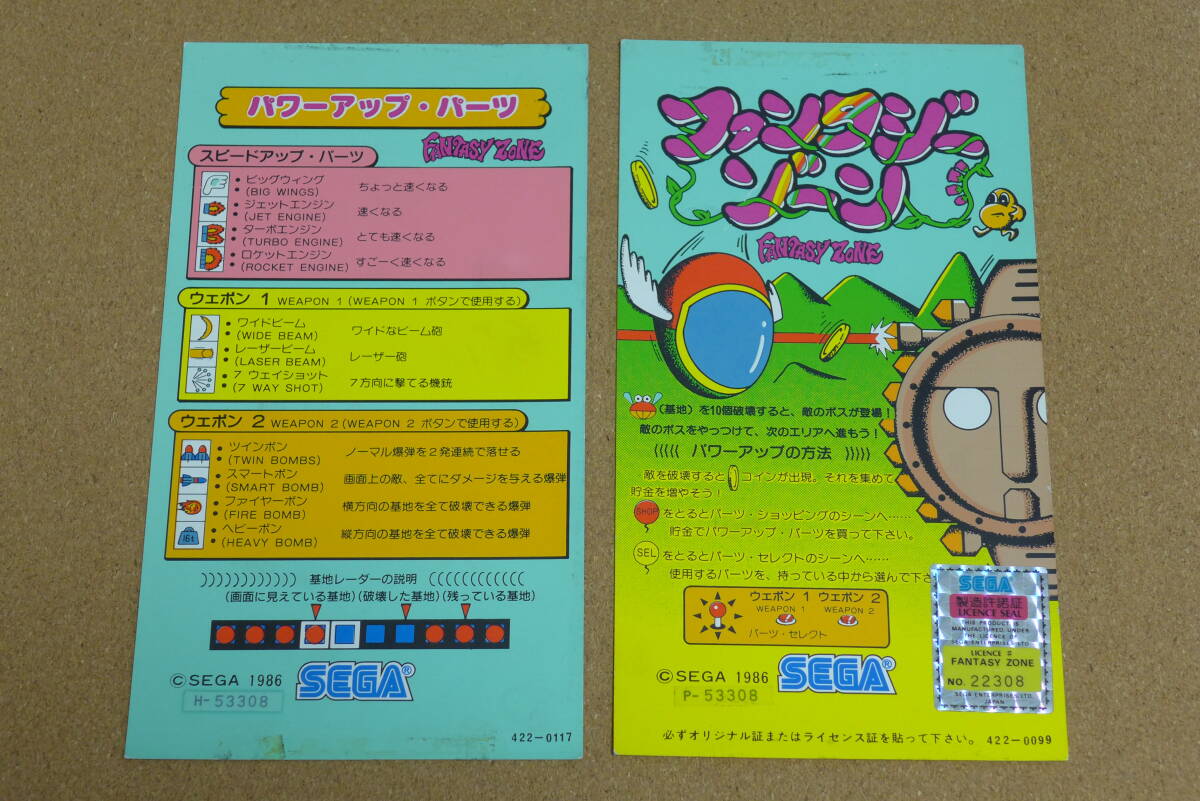 パワーアップ・パーツ
FANTASY ZONE
スピードアップ・パーツ
• ビッグウィング
• (BIG WINGS)
ちょっと速くなる
• ジェットエンジン
• (JET ENGINE)
速くなる
• ターボエンジン
• (TURBO ENGINE)
とても速くなる
• ロケットエンジン
• (ROCKET ENGINE)
すごーく速くなる
ウェポン 1 WEAPON 1 (WEAPON 1 ボタンで使用する)
• ワイドビーム
• (WIDE BEAM)
ワイドなビーム砲
• レーザービーム
• (LASER BEAM)
レーザー砲
• 7 ウェイショット
• (7 WAY SHOT)
7方向に撃てる機銃
ウェポン 2 WEAPON 2 (WEAPON 2 ボタンで使用する)
• ツインボン
• (TWIN BOMBS)
ノーマル爆弾を2発連続で落せる
• スマートボン
• (SMART BOMB)
画面上の敵、全てにダメージを与える爆弾
• ファイヤーボン
• (FIRE BOMB)
横方向の基地を全て破壊できる爆弾
16t
• ヘビーボン
• (HEAVY BOMB)
縦方向の基地を全て破壊できる爆弾
基地レーダーの説明
(画面に見えている基地)(破壊した基地)(残っている基地)
©SEGA 1986 SEGA®
H-53308
422-0117
ファンタジー
ゾーン
FANTASY ZONE
(基地)を10個破壊すると、敵のボスが登場!
敵のボスをやっつけて、次のエリアへ進もう!
パワーアップの方法
敵を破壊するとコインが出現。それを集めて
貯金を増やそう!
SHOP をとるとパーツ・ショッピングのシーンへ……
貯金でパワーアップ・パーツを買って下さい。
SEL をとるとパーツ・セレクトのシーンへ……
使用するパーツを、持っている中から選んで下さ
ウェポン 1 ウェポン 2
WEAPON 1 WEAPON 2
パーツ・セレクト
©SEGA 1986 SEGA®
P-53308
必ずオリジナル証またはライセンス証を貼って下さい。 422-0099
SEGA
製造許諾証
LICENCE SEAL
THIS PRODUCT IS
MANUFACTURED UNDER
THE LICENCE OF
SEGA ENTERPRISES LTD.
LICENCE #
FANTASY ZONE
NO. 22308
SEGA ENTERPRISES LTD.
JAPAN